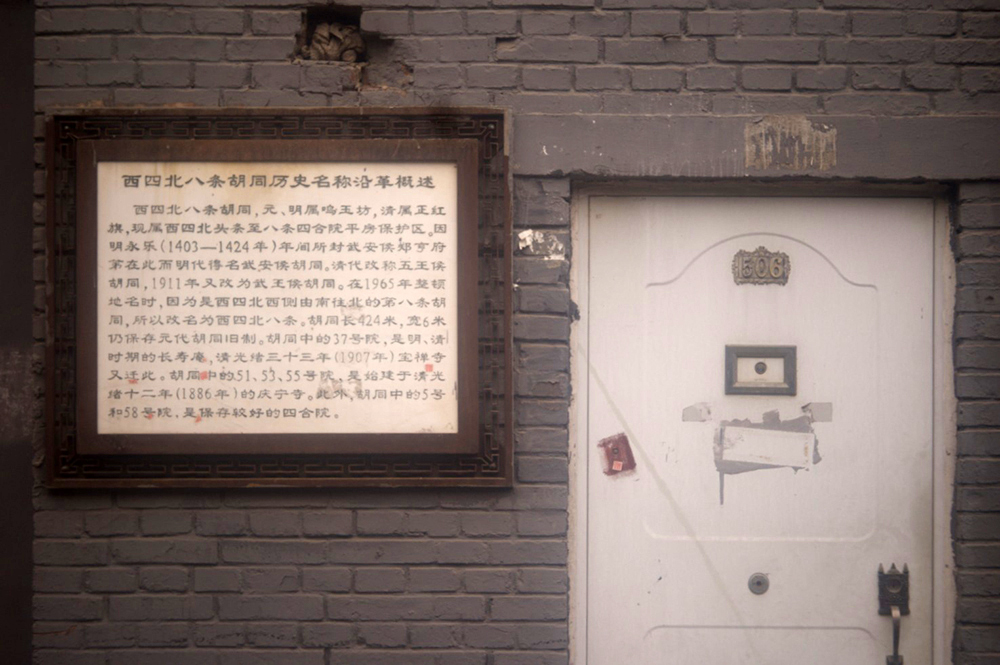 西四北八条胡同历史名称沿革概述
西四北八条胡同,元、明属鸣玉坊,清属正红
旗,现属西四北头条至八条四合院平房保护区。因
明永乐(1403—1424年)年间所封武安侯郑亨府
第在此而明代得名武安侯胡同。清代改称五王侯
胡同,1911年又改为武王侯胡同。在1965年整顿
地名时,因为是西四北西侧由南往北的第八条胡
同,所以改名为西四北八条。胡同长424米,宽6米
仍保存元代胡同旧制。胡同中的37号院,是明、清
时期的长寿庵,清光绪三十三年(1907年)宝禅寺
又迁此。胡同中的51、53、55号院,是始建于清光
绪十二年(1886年)的庆宁寺。此外,胡同中的5号
和58号院,是保存较好的四合院。
506